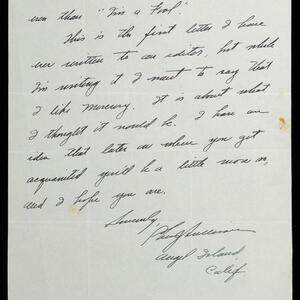 even than "I'm a Fool."
This is the first letter I have
ever written to an editor, but while
I'm writing it I want to say that
I like Mercury. It is about what
I thought it would be. I have an
idea that later on when you get
acquainted you'll be a little more so,
and I hope you are.
Sincerely
Angel Island
Calif.